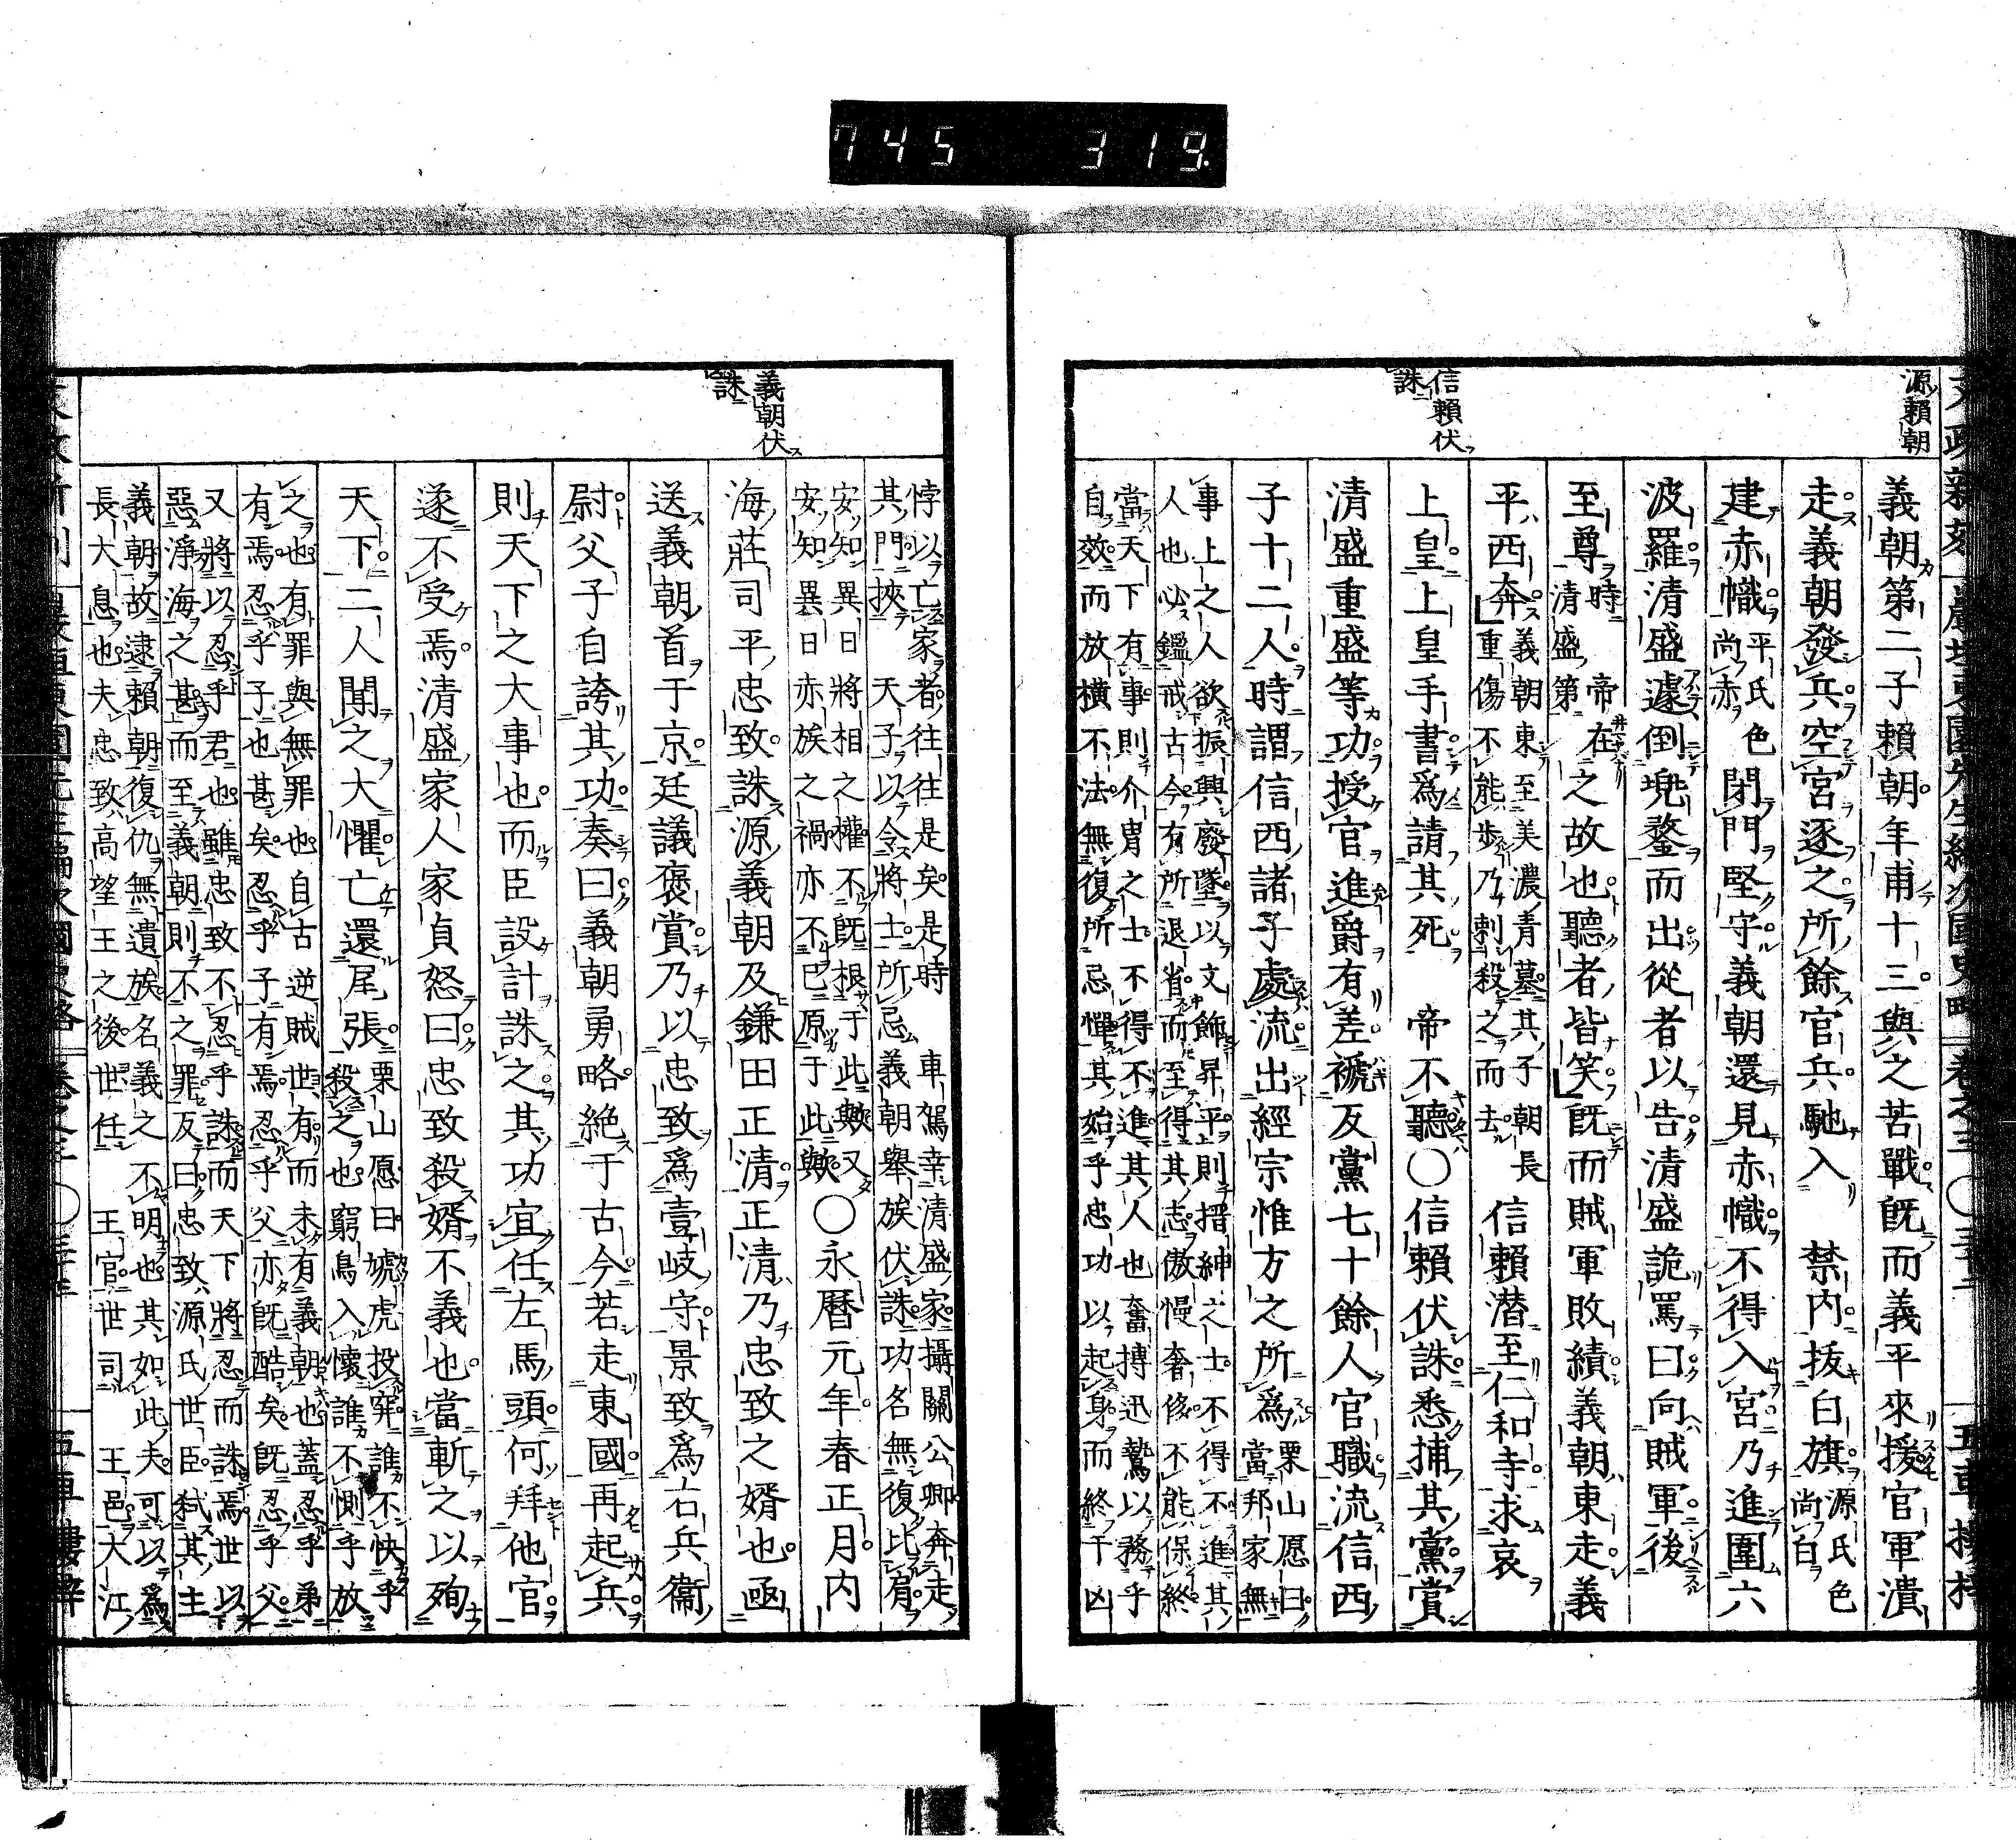 745 319.
源賴朝
義朝第二子賴朝年甫十三與之苦戰既而義平來援官軍潰
走義朝發兵空宮逐之所餘官兵馳入 禁內拔白旗源氏色尚白
建赤幟平氏色尚赤閉門堅守義朝還見赤幟不得入宮乃進圍六
波羅清盛遽倒兜鍪而出從者以告清盛詭罵曰向賊軍後
至尊時清盛第 帝在之故也聽者皆笑既而賊軍敗績義朝東走義
平西奔義朝東至美濃青墓其子朝長重傷不能步乃刺殺之而去 信賴潛至仁和寺求哀
信賴伏誅
上皇上皇手書爲請其死 帝不聽〇信賴伏誅悉捕其黨賞
清盛重盛等功授官進爵有差褫反黨七十餘人官職流信西
子十二人時謂信西諸子處流出經宗惟方之所爲栗山愿曰當邦家無
事上之人欲振興廢墜以文飾昇平則搢紳之士不得不進其
人也必鑑戒古今有所退省而至得其志傲慢奢侈不能保終
當天下有事則介冑之士不得不進其人也奮搏迅鷙以務乎
自效而放橫不法無復所忌憚其始乎忠功以起身而終干凶
悖以亡家者往往是矣是時 車駕幸清盛家攝關公卿奔走
其門挾 天子以令將士所忌義朝舉族伏誅功名無復比肩
安知異日將相之權不既根于此歟又
安知異日亦族之禍亦不已原于此歟〇永曆元年春正月內
義朝伏誅
海莊司平忠致誅源義朝及鎌田正清正清乃忠致之婿也函
送義朝首于京廷議褒賞乃以忠致爲壹岐守景致爲右兵衞
尉父子自誇其功奏曰義朝勇略絕于古今若走東國再起兵
則天下之大事也而臣設計誅之其功宜任左馬頭何拜他官
遂不受焉清盛家人家貞怒曰忠致殺婿不義也當斬之以殉
天下二人聞之大懼亡還尾張栗山愿曰虓虎投穽誰不快乎殺之也窮鳥入懷誰不惻乎放
之也有罪與無罪也自古逆賊世有而未有義朝也蓋忍乎弟
有焉忍乎子也甚矣忍乎子有焉忍乎父亦既酷矣既忍乎父
又將以忍乎君也雖忠致不忍乎誅而天下將忍而誅焉世以
惡淨海之甚而至義朝則不之罪反曰忠致源氏世臣弒其主
義朝故逮賴朝復仇無遺族名義之不明也其如此夫可以爲
長大息也夫忠致高望王之後世任 王官世司 王邑大江